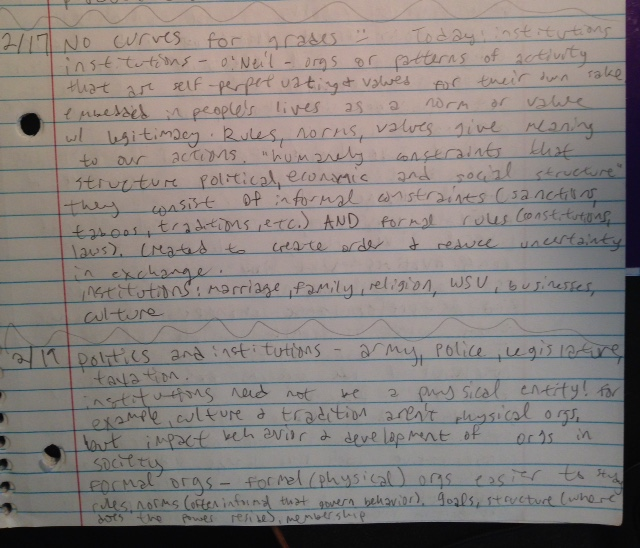 2/17 No curves for grades :: Today: institutions
institutions - O'Neil - orgs or patterns of activity
that are self-perpetuating & valued for their own sake
embedded in people's lives as a norm or value
w/ legitimacy. Rules, norms, values give meaning
to our actions. "humanely constraints that
structure political, economic and social structure"
they consist of informal constraints (sanctions,
taboos, traditions, etc.) AND formal rules (constitutions,
laws). Created to create order & reduce uncertainty
in exchange.
institutions: marriage, family, religion, WSU, businesses,
culture
2/19 Politics and institutions - army, police, legislature,
taxation.
institutions need not be a physical entity! for
example, culture & tradition aren't physical orgs,
but impact behavior & development of orgs in
society
Formal orgs - formal (physical) orgs easier to study
rules, norms (often informal that govern behavior), goals, structure (where
does the power reside), membership